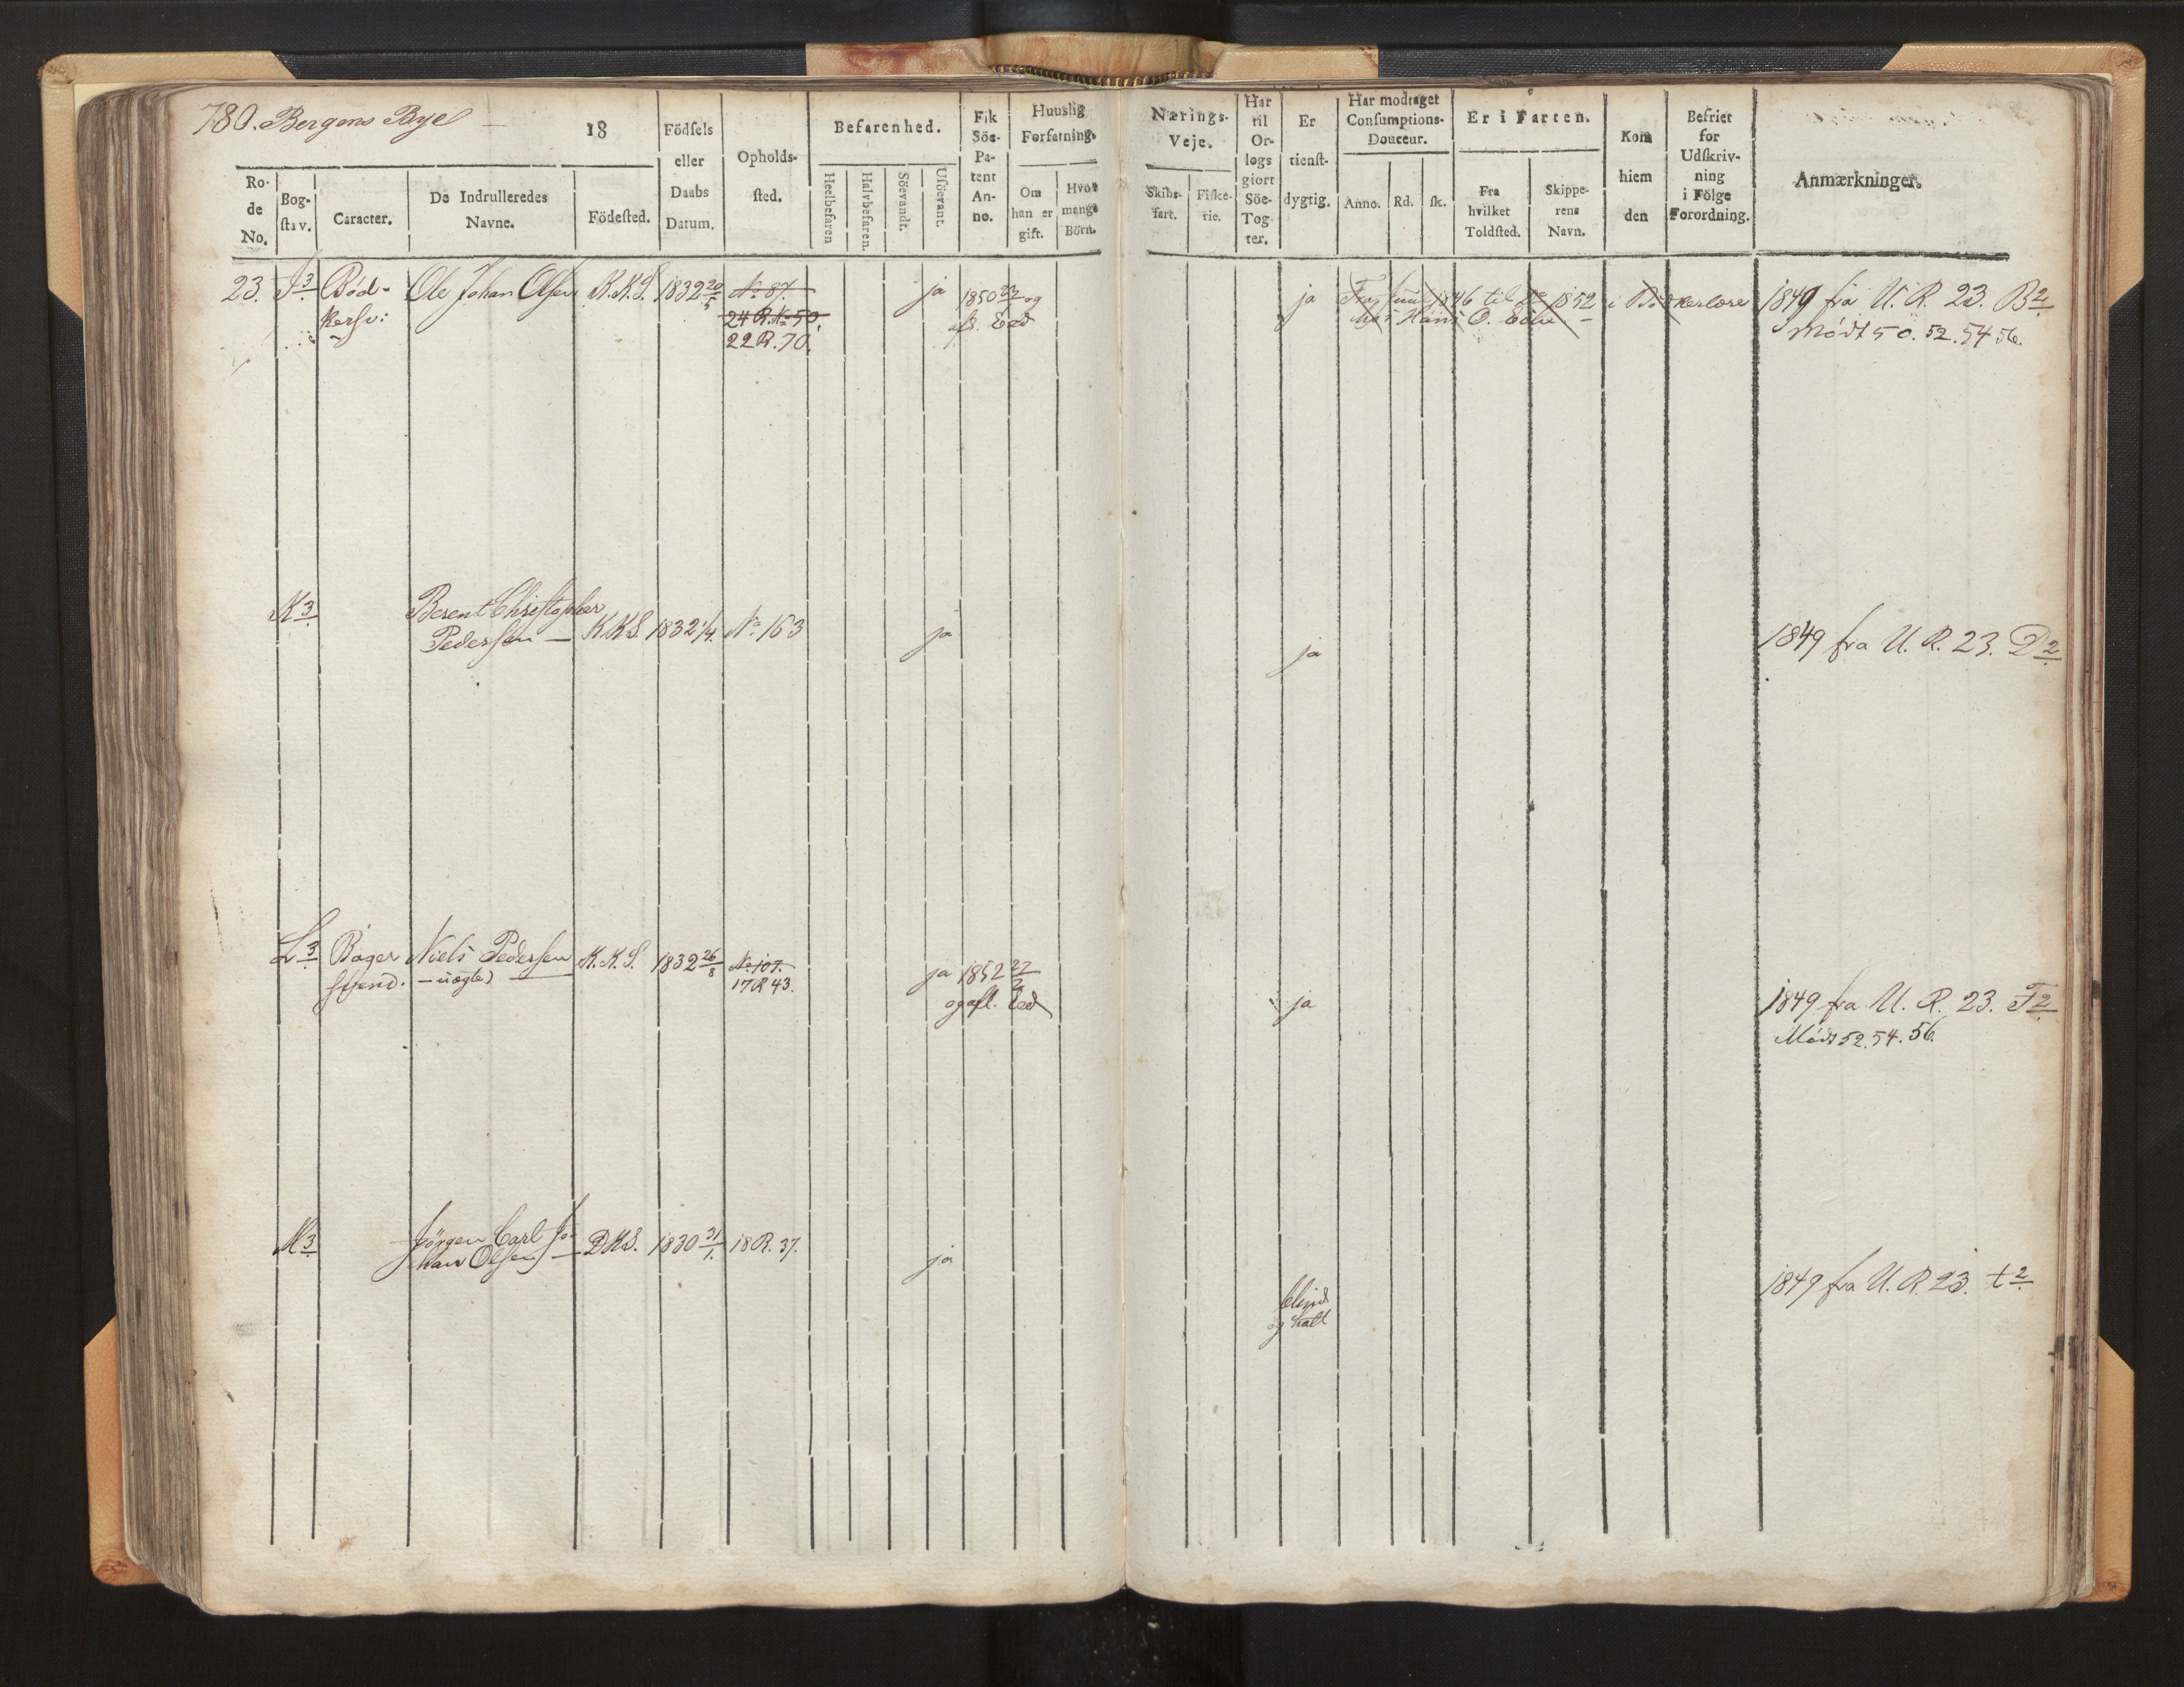 780. Bergens Bye
18
Ro-
de
No.
Bog-
stav.
Caracter.
De Indrulleredes
Navne.
Födested.
Födsels
eller
Daabs
Datum.
Opholds-
sted.
Befarenhed.
Heelbefaren
Halvbefaren.
Söevandt.
Usöevant.
Fik
Söe-
Pa-
tent
An-
no.
Huuslig
Forfatning.
Om
han er
gift.
Hvor
mange
Börn.
Nærings-
Veje.
Skibs-
fart.
Fiske-
rie.
Har
til
Or-
logs
giort
Söe-
Tog-
ter.
Er
tienst-
dygtig.
Har modtaget
Consumptions-
Douceur.
Anno.
Rd.
sk.
Er i Farten.
Fra
hvilket
Toldsted.
Skippe-
rens
Navn.
Kom
hiem
den
Befriet
for
Udskriv-
ning
i Fölge
Forordning.
Anmærkninger.
23. J3 Bød- Ole Johan Olsen K.K.S. 1832 20/5 No 87. ja 1850 23 og ja 1846 til 1852 i 1849 fra U. R. 23. B2
kersv: 24 R. No 50. afl. Eed Hans O.
22 R. 70. Mødt 50. 52. 54 56.
K3 Berent Christopher
Pedersen — K.K.S. 1832 1/4. No 163 ja ja 1849 fra U. R. 23. D2
L3 Bager Niels Pedersen K.K.S. 1832 26/8 No 107. ja 1852 27 ja 1849 fra U. R. 23. F2
svend. — uægte) 17 R 43. og afl. Eed Mødt 52. 54. 56.
M3 Jörgen Carl Jo-
han Olsen — D.K.S. 1830 31/1. 18 R. 37. ja blind 1849 fra U. R. 23. t2
og halt